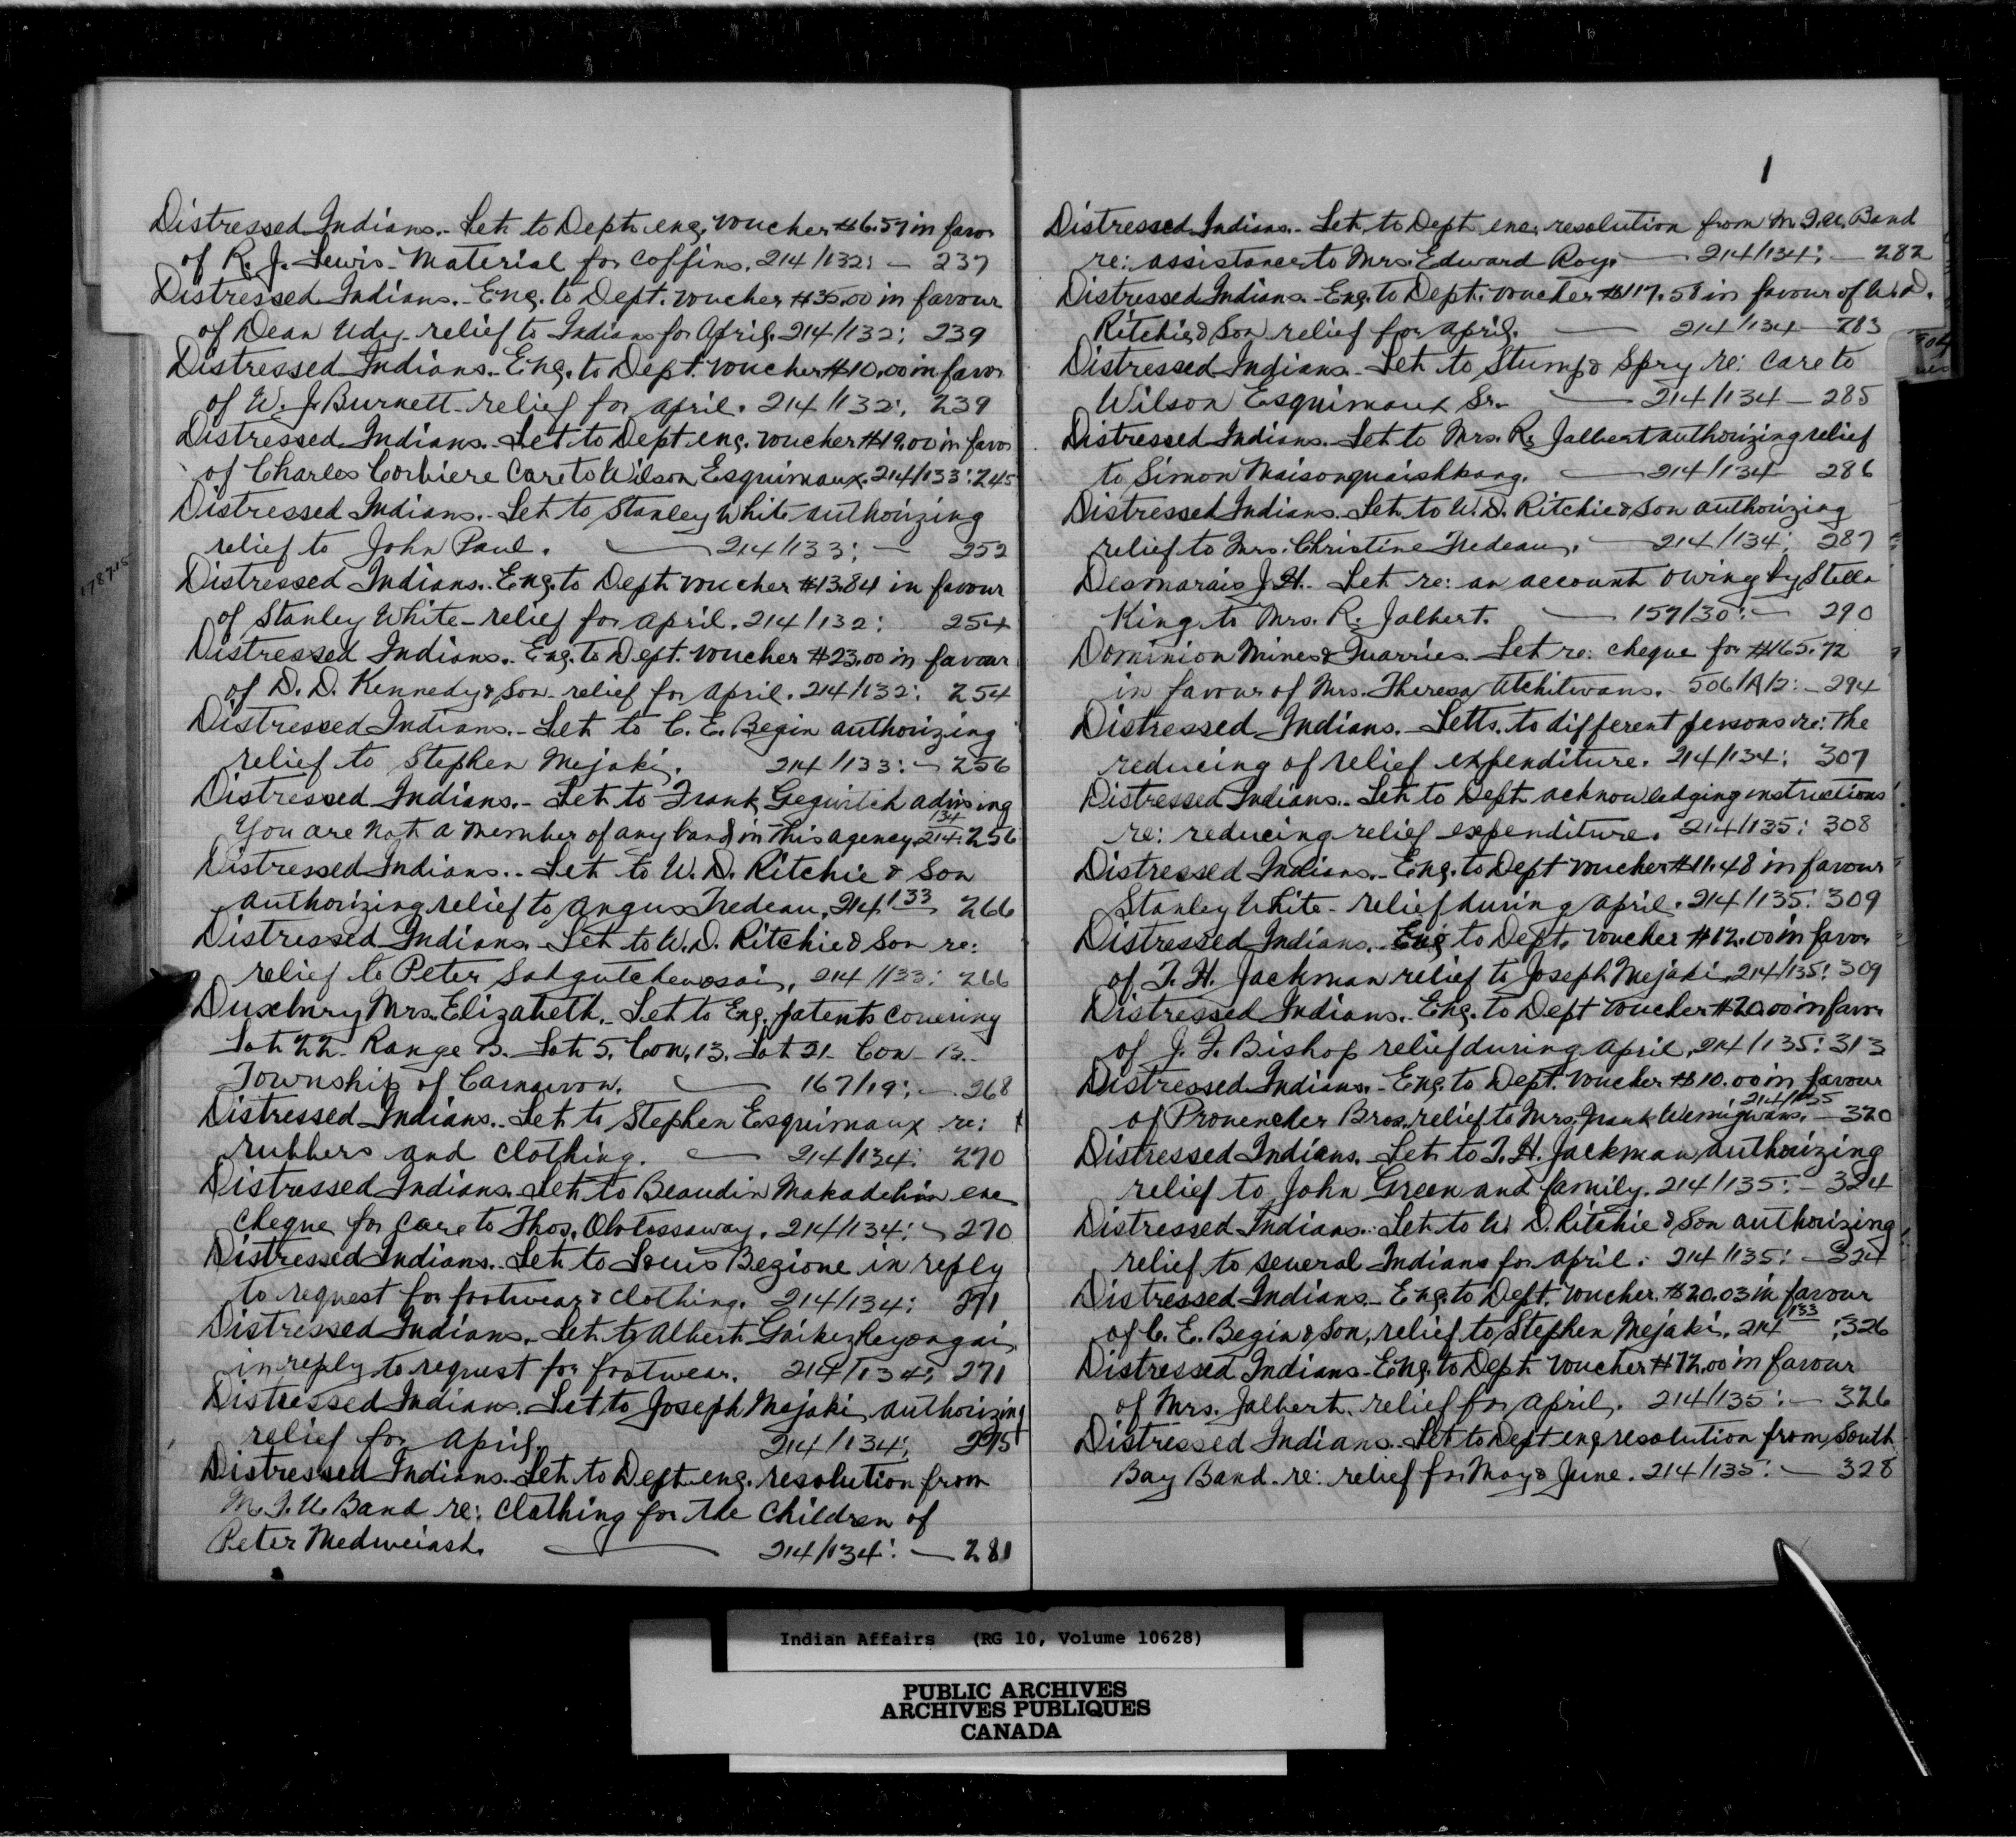 Distressed Indians.- Let. to Dept. enc. voucher $6.57 in favor
of R. J. Lewis - Material for coffins. 214/132: - 237
Distressed Indians.- Enc. to Dept. voucher $35.00 in favour
of Dean Udy - relief to Indians for April. 214/132: 239
Distressed Indians.- Enc. to Dept. voucher $10.00 in favor
of W. J. Burnett - relief for April. 214/132: 239
Distressed Indians.- Let to Dept enc. voucher $19.00 in favor
of Charles Corbiere Care to Wilson Esquimaux. 214/133: 245
Distressed Indians.- Let to Stanley White authorizing
relief to John Paul. — 214/133: — 252
Distressed Indians.- Enc. to Dept. voucher $13.84 in favour
of Stanley White - relief for April. 214/132: 254
Distressed Indians.- Enc. to Dept. voucher $23.00 in favour
of D. D. Kennedy & Son - relief for April. 214/132: 254
Distressed Indians.- Let to C. E. Begin authorizing
relief to Stephen Mejaki. 214/133: - 256
Distressed Indians.- Let to Frank advising
134
You are not a member of any band in this agency. 214: 256
Distressed Indians.- Let to W. D. Ritchie & Son
authorizing relief to Angus Nedeau. 214/133 266
Distressed Indians.- Let to W. D. Ritchie & Son re:
relief to Peter 214/133: 266
Duxbury Mrs. Elizabeth.- Let to Enc. patents covering
Lot 22 - Range B. Lot 5. Con. 13. Lot 21 - Con - 13.-
Township of Carnarvon. — 167/19: — 268
Distressed Indians.- Let to Stephen Esquimaux re:
rubbers and clothing. — 214/134: 270
Distressed Indians. Let to Beaudin Makadebin enc
cheque for care to Thos. Obtossaway. 214/134: - 270
Distressed Indians.- Let to Louis Bezione in reply
to request for footwear & clothing. 214/134: 271
Distressed Indians. Let to Albert
in reply to request for footwear. 214/134: 271
Distressed Indians. Let to Joseph Mejaki authorizing
relief for April. 214/134: 275
Distressed Indians. Let to Dept enc. resolution from
M. I. U. Band re: clothing for the children of
Peter Medweiash. — 214/134: — 281
1
Distressed Indians.- Let. to Dept enc. resolution from M. I. U. Band
re: assistance to Mrs. Edward Roy. — 214/134: — 282
Distressed Indians.- Enc. to Dept. voucher $117.58 in favour of W. D.
Ritchie & Son relief for April. — 214/134 — 283
Distressed Indians.- Let to Stump & Spry re: care to
Wilson Esquimaux Sr. — 214/134 — 285
Distressed Indians.- Let to Mrs. R. Jalbert authorizing relief
to Simon — 214/134 286
Distressed Indians. Let to W. D. Ritchie & Son authorizing
relief to Mrs. Christine Nedeau. — 214/134: 287
Desmarais J. H.- Let re: an account owing by Stella
King to Mrs. R. Jalbert. — 157/30: — 290
Dominion Mines & Quarries.- Let re: cheque for $165.72
in favour of Mrs. Theresa Atchitwans.- 506/A/2: - 294
Distressed Indians.- Letts. to different persons re: the
reducing of relief expenditure. 214/134: 307
Distressed Indians.- Let to Dept. acknowledging instructions
re: reducing relief expenditure. 214/135: 308
Distressed Indians.- Enc. to Dept voucher $11.48 in favour
Stanley White - relief during April. 214/135: 309
Distressed Indians.- Enc to Dept. voucher $12.00 in favor
of T. H. Jackman relief to Joseph Mejaki. 214/135: 309
Distressed Indians.- Enc. to Dept voucher $20.00 in favor
of J. F. Bishop relief during April. 214/135: 313
Distressed Indians.- Enc. to Dept. voucher $10.00 in favour
214/135
of Provencher Bros. relief to Mrs. Frank Wemigwans. - 320
Distressed Indians.- Let to T. H. Jackman authorizing
relief to John Green and family. 214/135: - 324
Distressed Indians.- Let to W. D. Ritchie & Son authorizing
relief to several Indians for April. 214/135: - 324
Distressed Indians.- Enc. to Dept. voucher $20.03 in favour
of C. E. Begin & Son, relief to Stephen Mejaki. 214/133: 326
Distressed Indians - Enc. to Dept. voucher $72.00 in favour
of Mrs. Jalbert relief for April. 214/135: — 326
Distressed Indians.- Let to Dept enc resolution from South
Bay Band - re: relief for May & June. 214/135: — 328
Indian Affairs (RG 10, Volume 10628)
PUBLIC ARCHIVES
ARCHIVES PUBLIQUES
CANADA